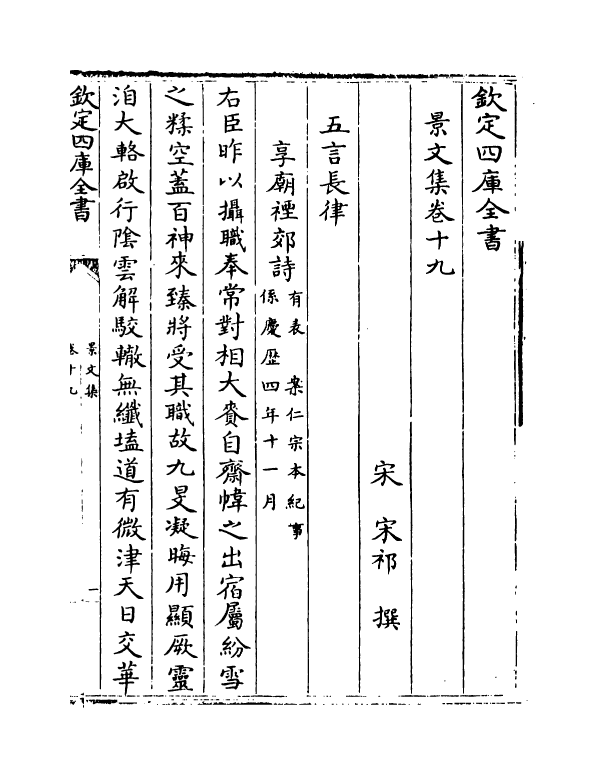 欽定四庫全書
景文集卷十九
宋 宋祁 撰
五言長律
享廟禋郊詩
有表 案仁宗本紀事
係慶歴四年十一月
右臣昨以攝職奉常對相大賚自齋幃之出宿屬紛雪
之糅空蓋百神來臻將受其職故九旻凝晦用顯厥靈
洎大輅啟行陰雲解駮轍無纖壒道有微津天日交華
欽定四庫全書
景文集
卷十九
一